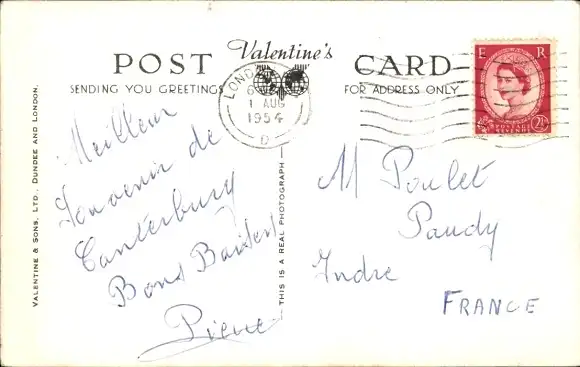 POST Valentine's CARD
SENDING YOU GREETINGS FOR ADDRESS ONLY
LONDON
1 AUG
1954
D
E R
POSTAGE
REVENUE
2½
Meilleur
Souvenir de
Canterbury
Bons Baisers
Pierre
M Poulet
Paudy
Indre
FRANCE
VALENTINE & SONS, LTD., DUNDEE AND LONDON.
THIS IS A REAL PHOTOGRAPH